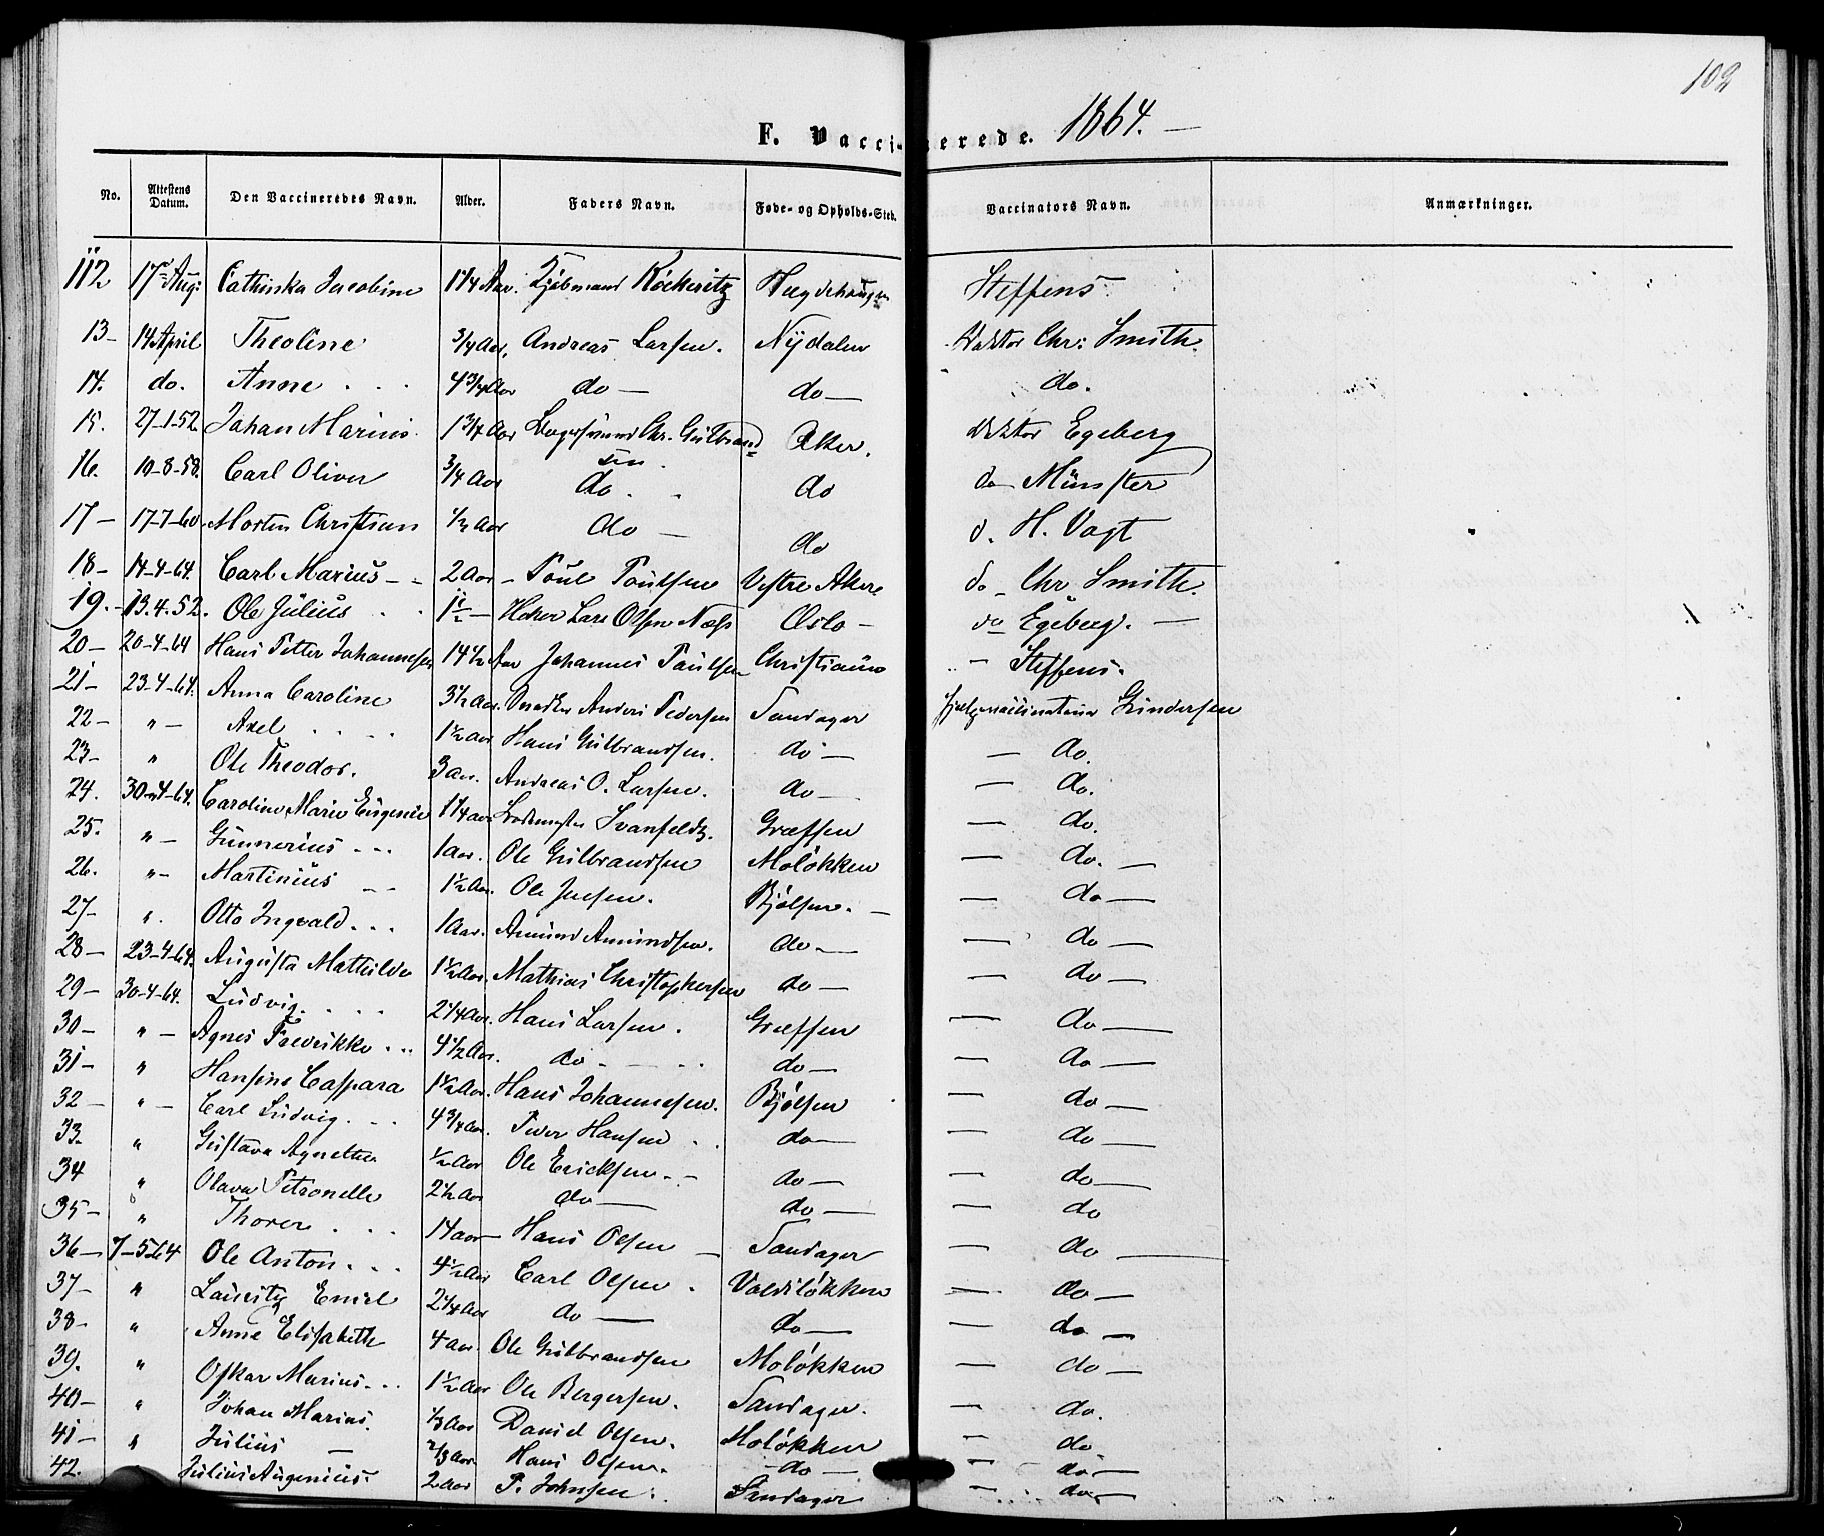 102
F. Vaccinerede. 1864. —
No. Attestens Datum. Den Vaccineredes Navn. Alder. Faders Navn. Føde- og Opholds-Sted. Vaccinators Navn. Anmærkninger.
112 17 Aug: Cathinka Jacobine 1 1/4 Aar. Kjøbmand Köckeritz Hægdehaugen Steffens
13 — 14 April Theoline 3/4 Aar. Andreas Larsen. Nÿdalen Doktor Chr: Smith.
14. do. Anne . . . 4 3/4 Aar do — do — do.
15. 27-1-52. Johan Marius 1 3/4 Aar Chr. Gulbrand= Aker. Doktor Egeberg
sen.
16. 10-8-58. Carl Oliver 3/4 Aar do. do do Münster
17 — 17-7-60. Morten Christian 1/2 Aar do — do d. H. Vogt
18 — 14-4-64. Carl Marius — 2 Aar — Poul Poulsen Vestre Aker do — Chr. Smith.
19. — 13.4.52. Ole Julius . . 1 1/2 — Høker Lars Olsen Næss Oslo — do Egeberg. —
20 — 20-4-64 Hans Petter Johannesen 14 1/2 Aar Johannes Paulsen Christiania — Steffens.
21 — 23-4-64. Anna Caroline 3 1/2 Aar. Snedker Anders Pedersen Sandager hjælpevaccinateur Gundersen
22 — " — Axel . . . . 1 1/2 Aar Hans Gulbrandsen. do — — do.
23 — " Ole Theodor. 3 Aar. Andreas O. Larsen. do — — do.
24. 30-4-64. Caroline Marie Eugenie 1 1/4 Aar Svanfeldt. Græfsen — do.
25. " — Gunnerius . . . 1 Aar. Ole Gulbrandsen Moløkken — do. —
26. " — Martinius — — 1 1/2 Aar. Ole Jensen. Bjølsen. — — do —
27 — " Otto Ingvald . . . 1 Aar. Amund Amundsen. do — — do —
28 — 23-4-64. Augusta Mathilde 1 1/2 Aar. Mathias Christophersen do — — do —
29 — 30-4-64. Ludvig . . . . 2 1/4 Aar. Hans Larsen. Græfsen — do —
30 — " — Agnes Fredrikke . . 4 1/2 Aar. do — do — — do —
31 — " Hansine Caspara 1 1/2 Aar. Hans Johannesen. Bjølsen — do —
32 — " — Carl Ludvig . . . 4 3/4 Aar. Peder Hansen . . do — — do —
33. " Gustava Agnethe 1/2 Aar Ole Ericksen. — do — — do —
34 " Olava Petronelle 2 1/2 Aar do — do — — do
35 — " Thorer . . . 14 Aar — Hans Olsen — Sandager — do —
36 — 7-5-64 Ole Anton . . . 4 1/2 Aar Carl Olsen . Voldsløkken — do —
37 — " Lauritz Emil 2 1/4 Aar do — do — — do —
38 — " Anne Elisabeth 4 Aar. Ole Gulbrandsen Moløkken — do —
39. " Oskar Marius . . . 1 1/2 Aar Ole Bergersen. Sandager. — do.
40 — " Johan Marius. 1/3 Aar Daniel Olsen. Moløkken — do
41 — " Julius — 2/3 Aar. Hans Olsen. — do — — do —
42. Julius Augenius. 2 Aar P. Johnsen. Sandager — do —